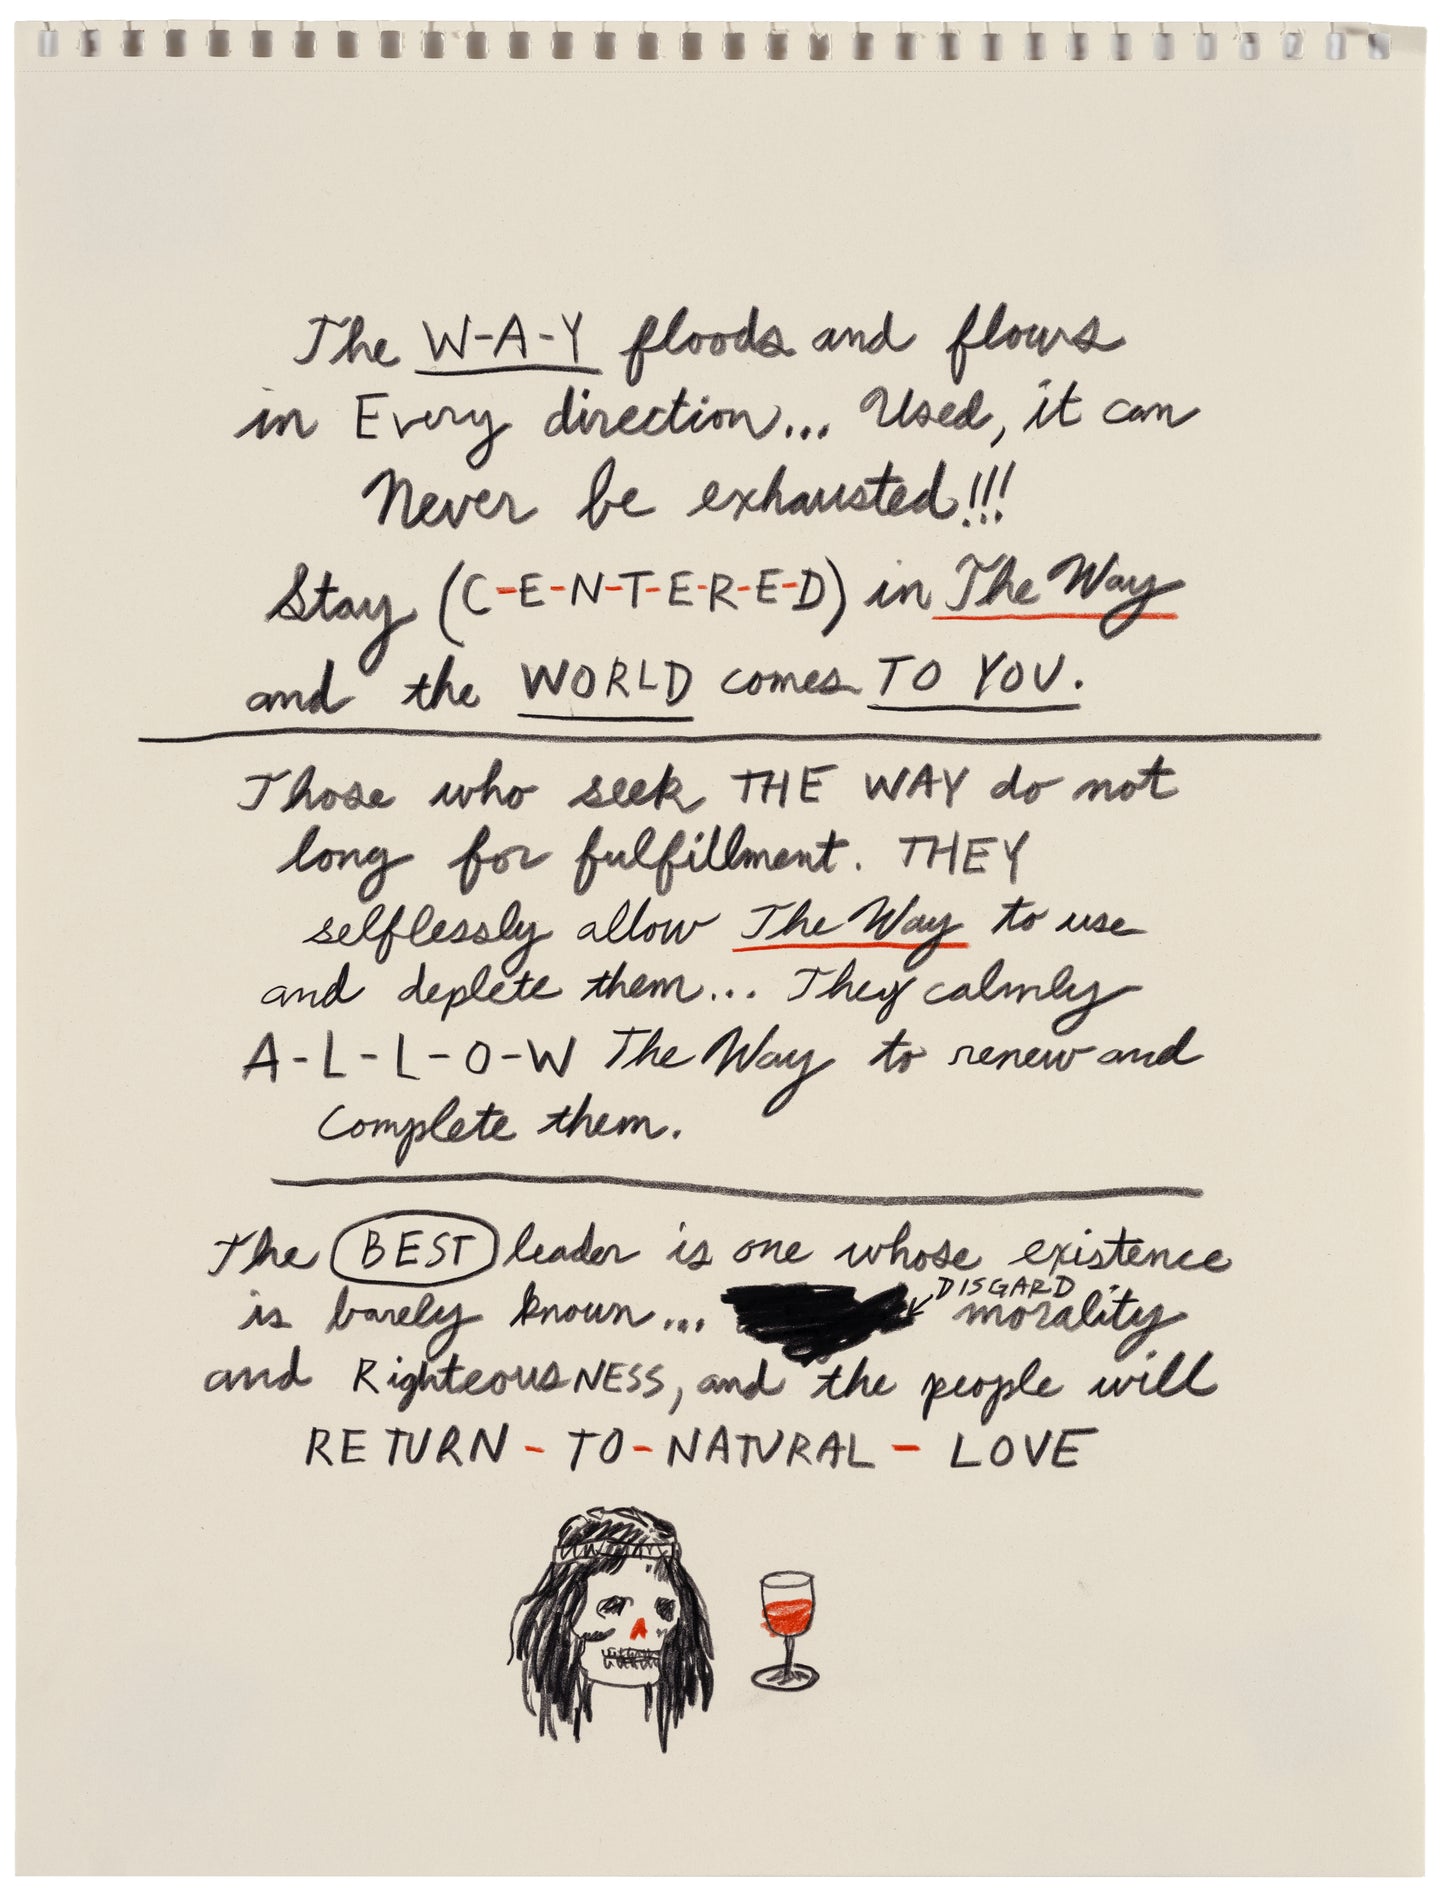 The W-A-Y floods and flows
in Every direction... Used, it can
Never be exhausted!!!
Stay (C-E-N-T-E-R-E-D) in The Way
and the WORLD comes TO YOU.
Those who seek THE WAY do not
long for fulfillment. THEY
selflessly allow The Way to use
and deplete them... They calmly
A-L-L-O-W The Way to renew and
Complete them.
The BEST leader is one whose existence
is barely known... DISGARD morality
and RighteousNESS, and the people will
RETURN - TO - NATURAL - LOVE